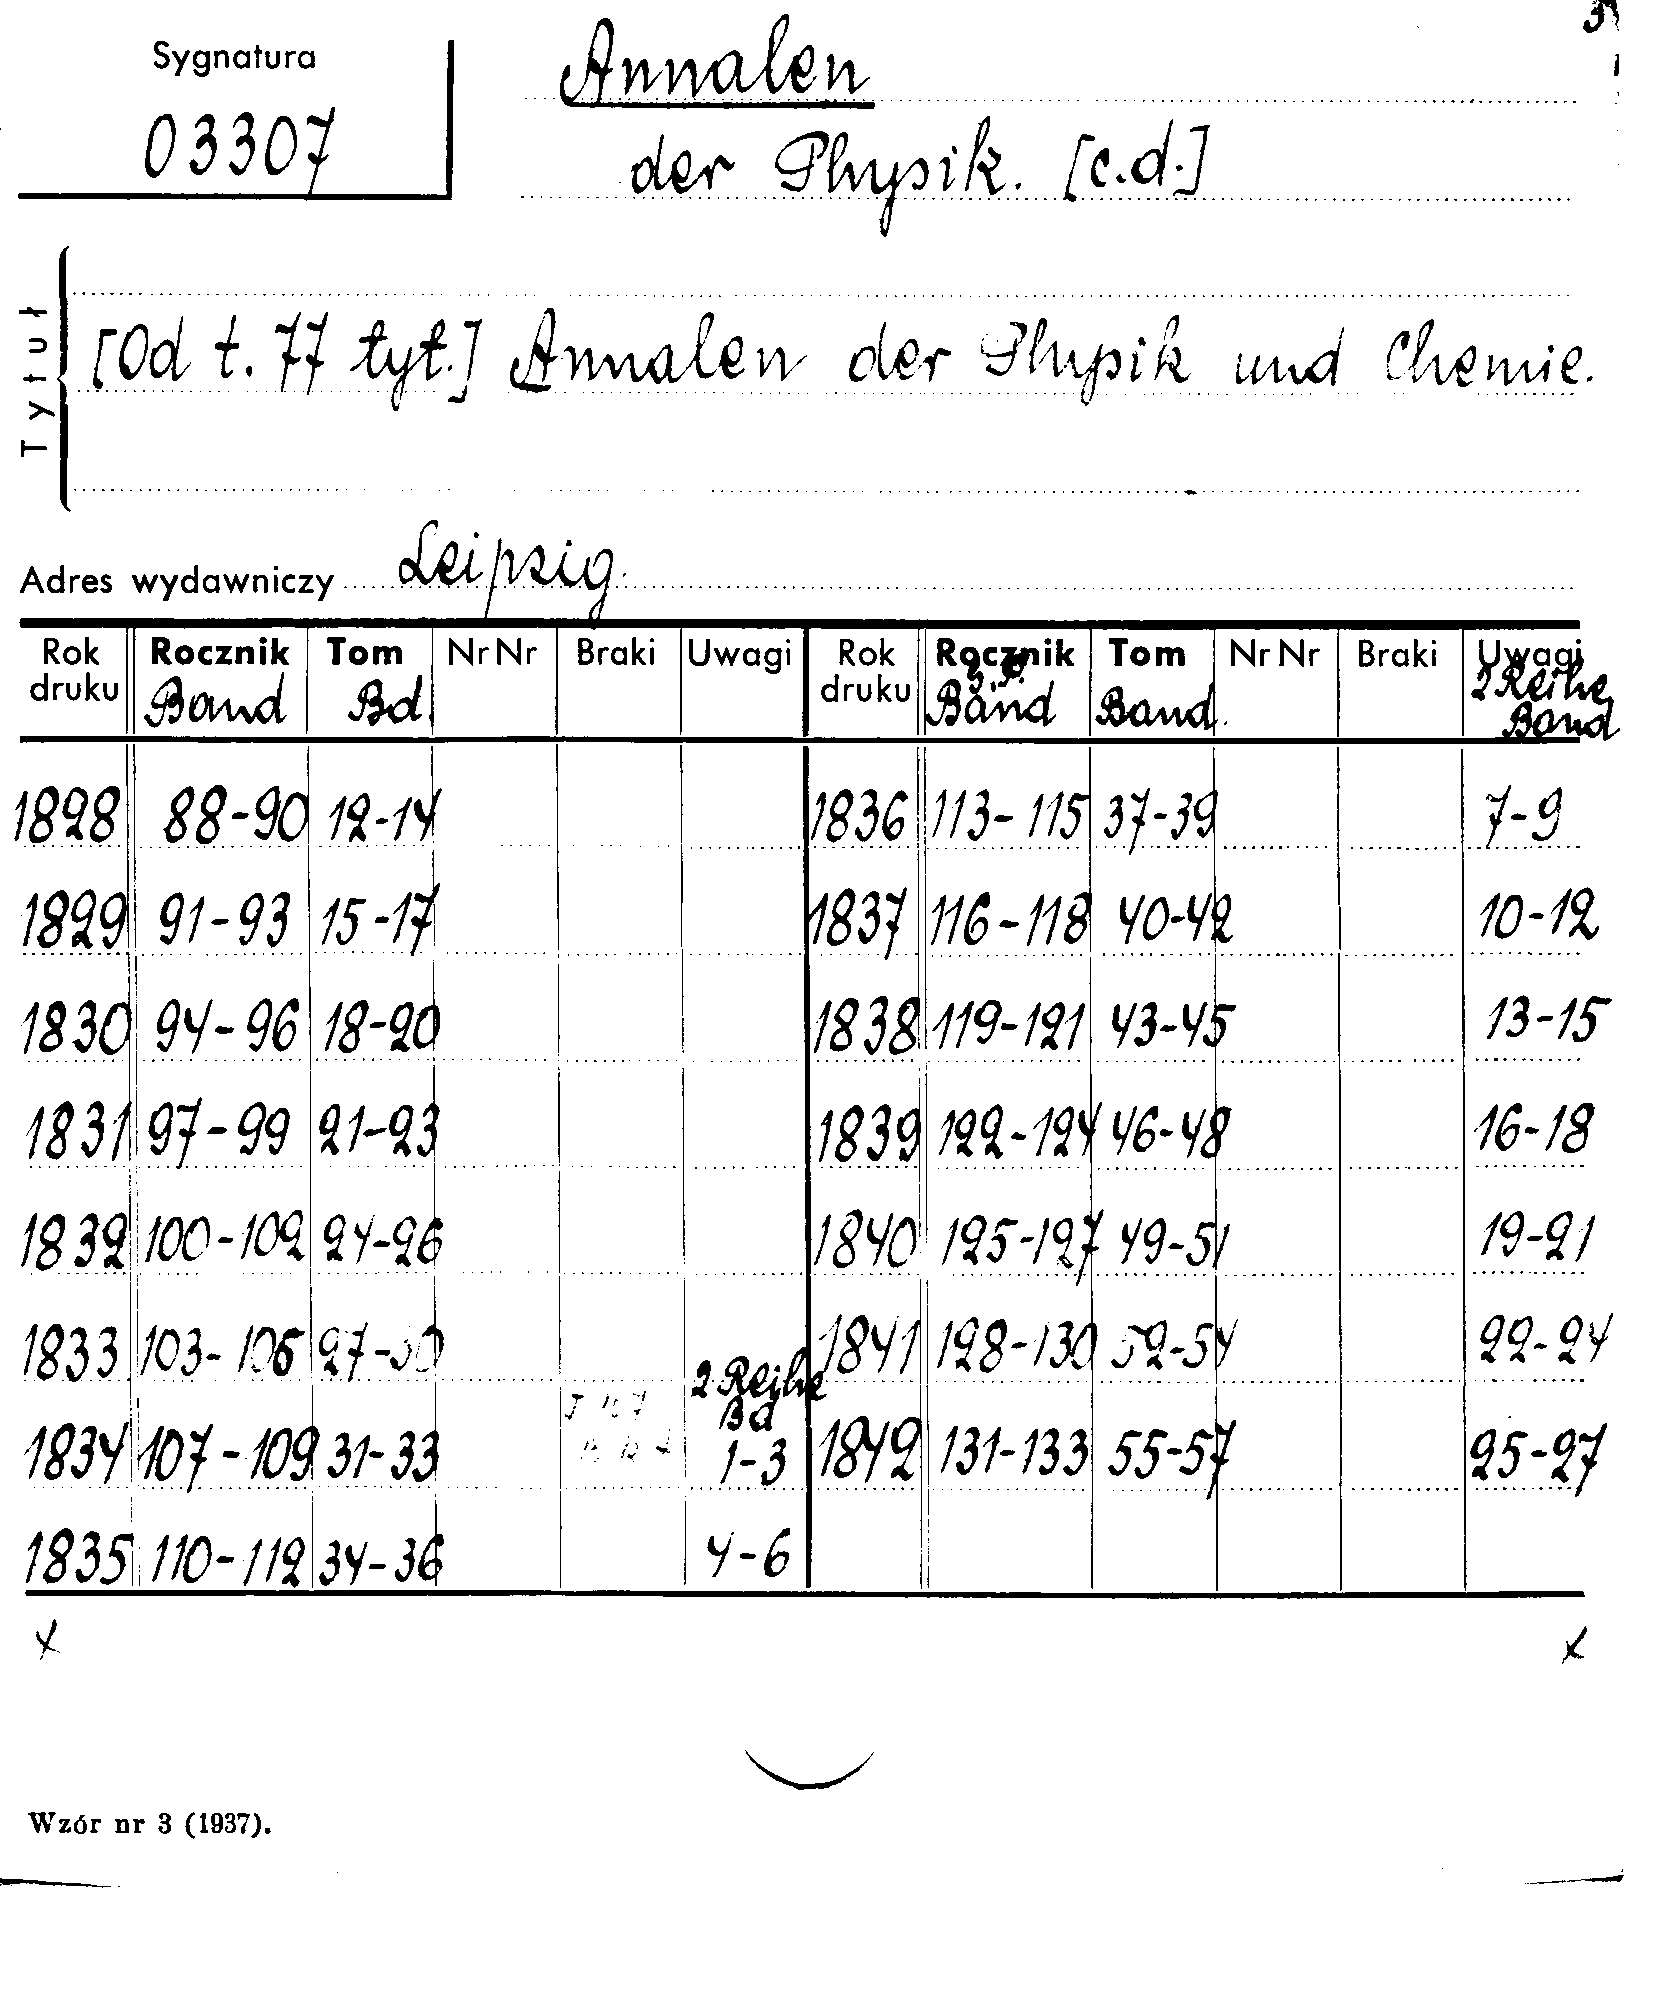 3
Sygnatura
03307
Annalen
der Physik. [c.d.]
Tytuł
[Od t. 77 tyt.] Annalen der Physik und Chemie.
Adres wydawniczy Leipzig.
Rok druku Rocznik Band Tom Bd Nr Nr Braki Uwagi Rok druku Rocznik Band Tom Band. Nr Nr Braki Uwagi 2 Reihe Band
1828 88-90 12-14 1836 113-115 37-39 7-9
1829 91-93 15-17 1837 116-118 40-42 10-12
1830 94-96 18-20 1838 119-121 43-45 13-15
1831 97-99 21-23 1839 122-124 46-48 16-18
1832 100-102 24-26 1840 125-127 49-51 19-21
1833 103-106 27-30 1841 128-130 52-54 22-24
1834 107-109 31-33 2 Reihe Bd 1-3 1842 131-133 55-57 25-27
1835 110-112 34-36 4-6
x x
Wzór nr 3 (1937).